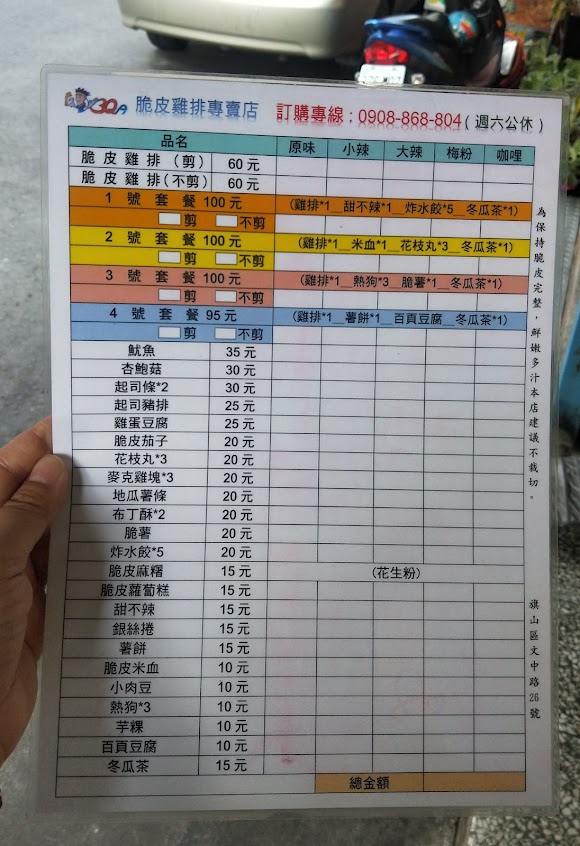 3Q 脆皮雞排專賣店 訂購專線：0908-868-804（週六公休）
品名 原味 小辣 大辣 梅粉 咖哩
脆皮雞排（剪） 60元
脆皮雞排（不剪） 60元
1號套餐 100元 （雞排*1__甜不辣*1__炸水餃*5__冬瓜茶*1）
剪 不剪
2號套餐 100元 （雞排*1__米血*1__花枝丸*3__冬瓜茶*1）
剪 不剪
3號套餐 100元 （雞排*1__熱狗*3__脆薯*1__冬瓜茶*1）
剪 不剪
4號套餐 95元 （雞排*1__薯餅*1__百頁豆腐__冬瓜茶*1）
剪 不剪
魷魚 35元
杏鮑菇 30元
起司條*2 30元
起司豬排 25元
雞蛋豆腐 25元
脆皮茄子 20元
花枝丸*3 20元
麥克雞塊*3 20元
地瓜薯條 20元
布丁酥*2 20元
脆薯 20元
炸水餃*5 20元
脆皮麻糬 15元 （花生粉）
脆皮蘿蔔糕 15元
甜不辣 15元
銀絲捲 15元
薯餅 15元
脆皮米血 10元
小肉豆 10元
熱狗*3 10元
芋粿 10元
百頁豆腐 10元
冬瓜茶 15元
總金額
為保持脆皮完整，鮮嫩多汁本店建議不裁切。
旗山區文中路26號